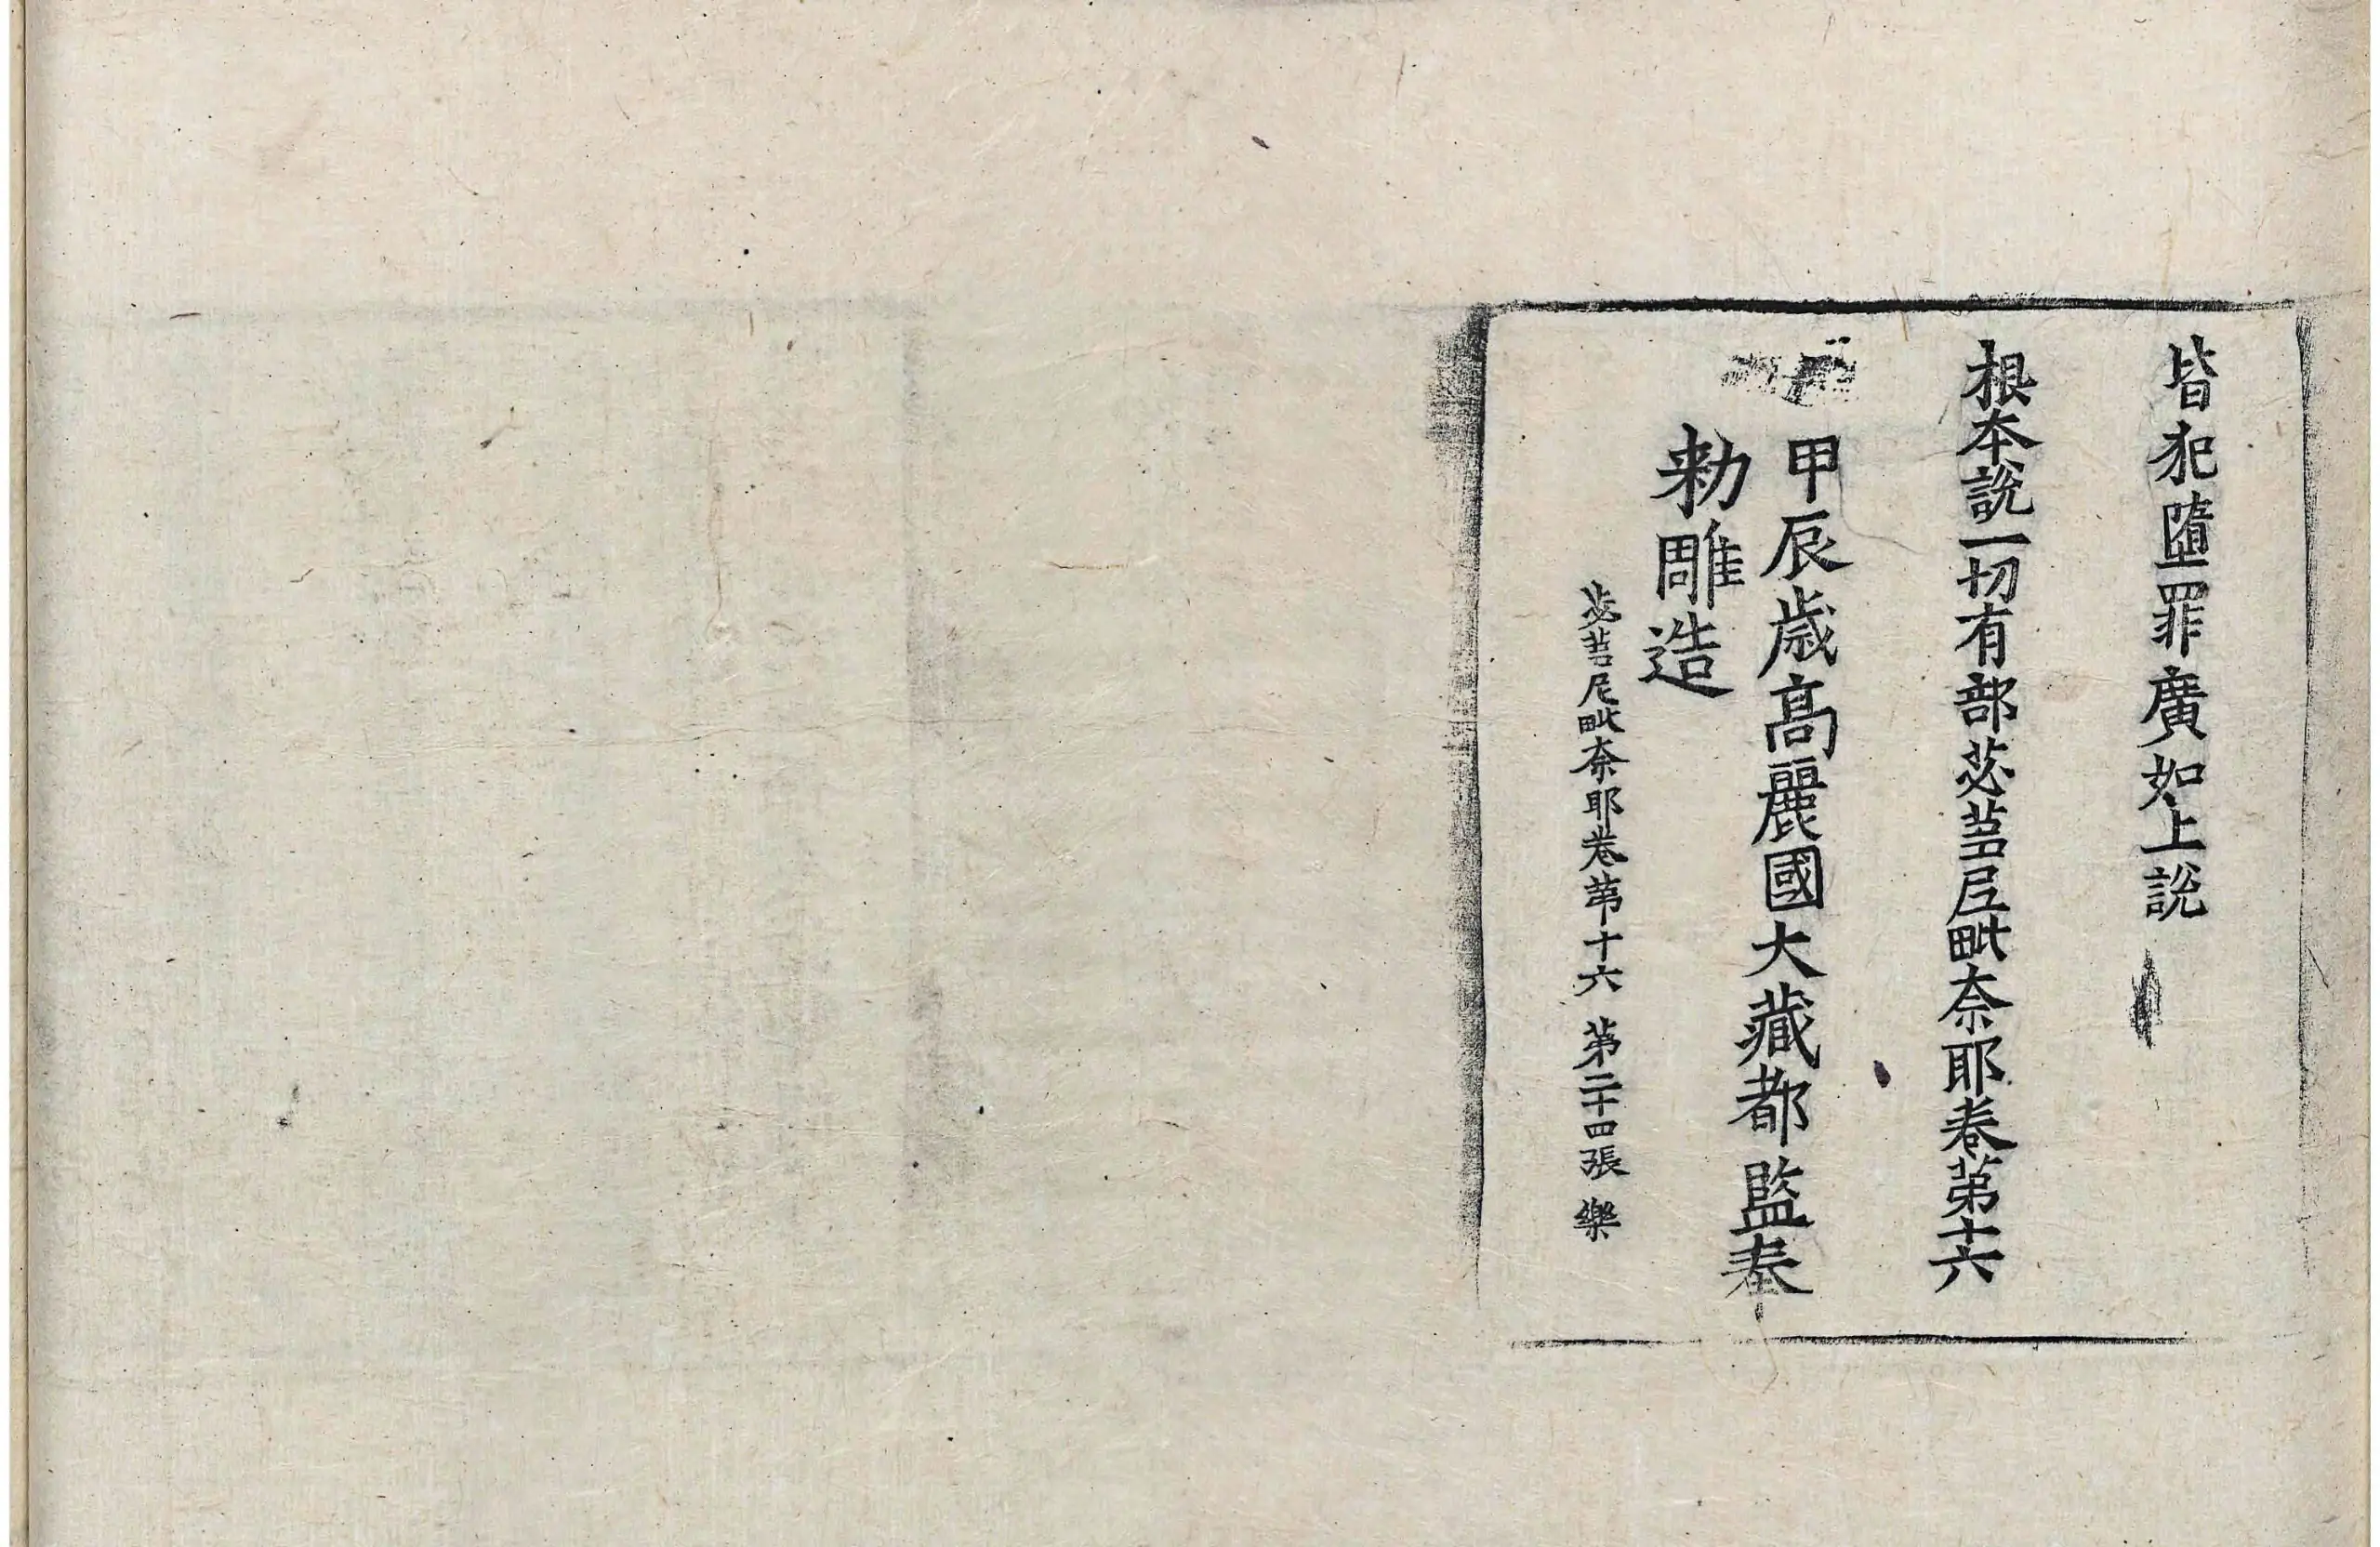 皆犯墮罪廣如上説
根本説一切有部苾芻尼毗奈耶卷第十六
甲辰歳高麗國大藏都監奉
勅雕造
苾芻尼毗奈耶卷第十六 第二十四張 樂